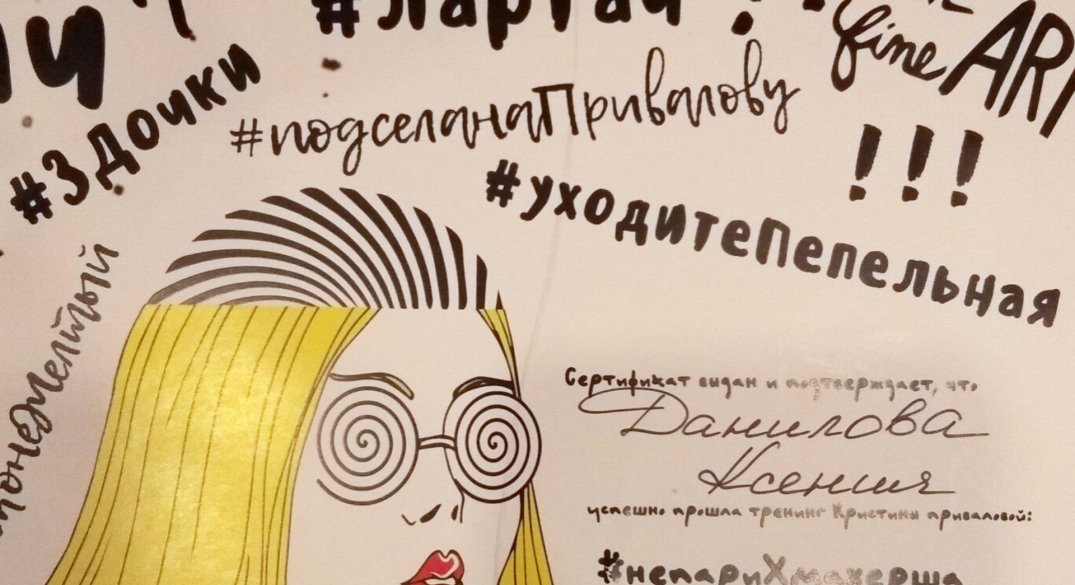 fine ART
#3Дочки
#подселанаПривалову
!!!
#уходитеПепельная
Сертификат выдан и подтверждает, что
Данилова
Ксения
успешно прошла тренинг Кристины Приваловой:
#непариХмохерша